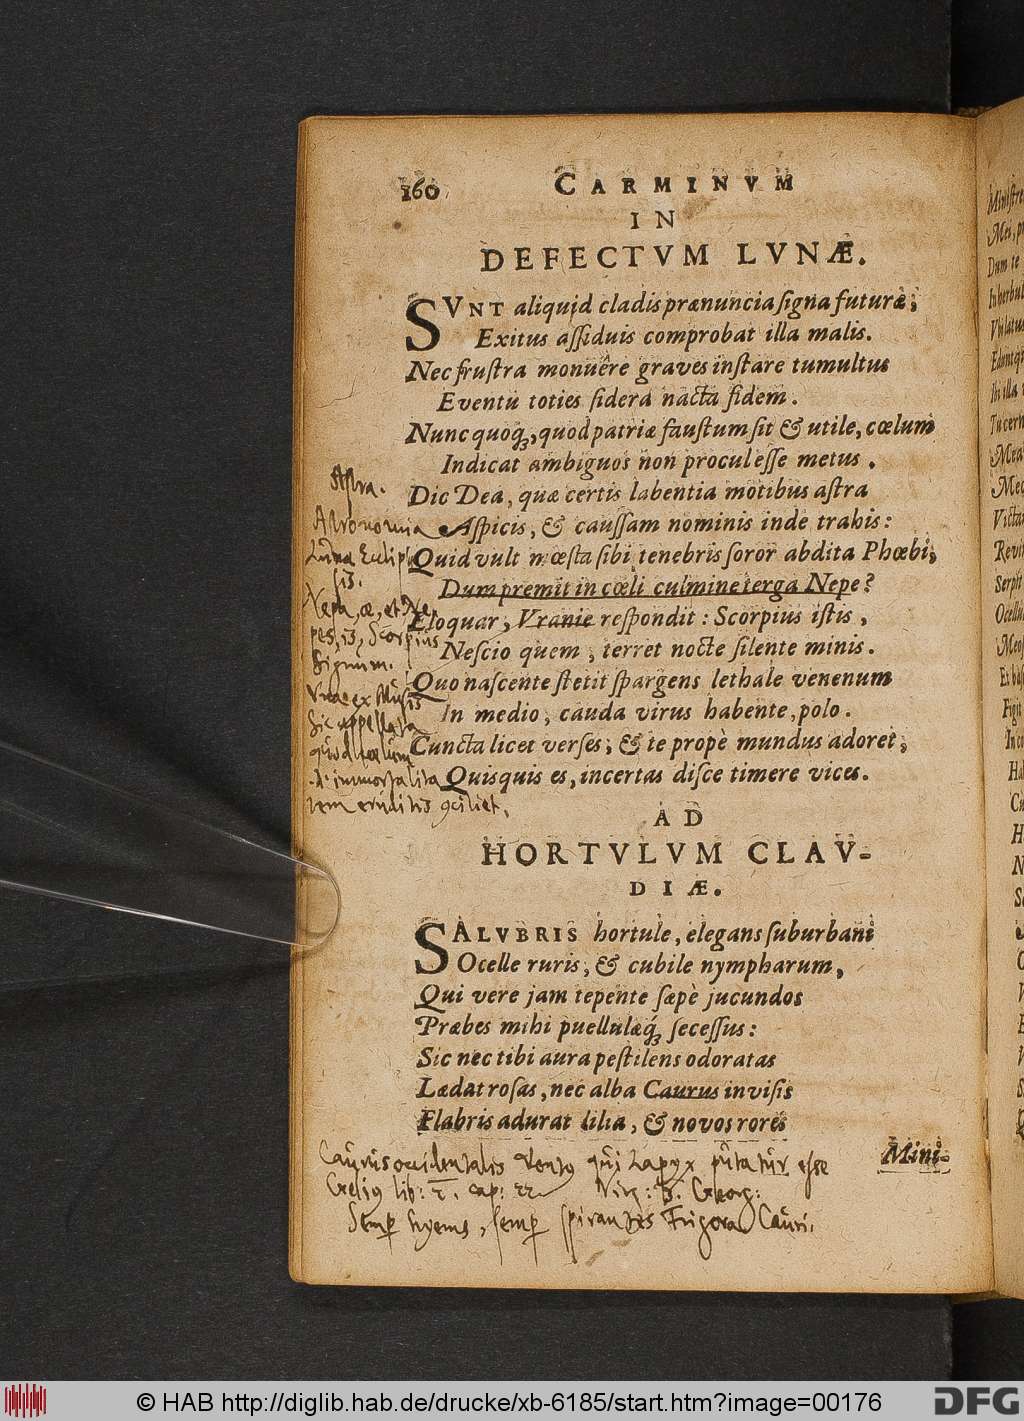 160 CARMINVM
IN
DEFECTVM LVNÆ.
SVNT aliquid cladis prænuncia ſigna futuræ;
Exitus aſſiduis comprobat illa malis.
Nec fruſtra monuêre graves inſtare tumultus
Eventu toties ſidera nacta fidem.
Nunc quoq́ꝫ, quod patriæ fauſtum ſit & utile, cœlum
Indicat ambiguos non procul eſſe metus.
Dic Dea, quæ certis labentia motibus aſtra
Aſpicis, & cauſſam nominis inde trahis:
Quid vult mœſta ſibi tenebris ſoror abdita Phœbi,
Dum premit in cœli culmine terga Nepe?
Eloquar, Vranie reſpondit: Scorpius iſtis,
Neſcio quem, terret nocte ſilente minis.
Quo naſcente ſtetit ſpargens lethale venenum
In medio, cauda virus habente, polo.
Cuncta licet verſes, & te propè mundus adoret,
Quisquis es, incertas diſce timere vices.
Astra.
Astronomia
Luna Eclip
sis.
Nepa, æ, et Ne
pes, is, Scorpius
Signum.
Vna ex Musis
sic appellata
quod cœlum
immortalita
tem eruditis
AD
HORTVLVM CLAV-
DIÆ.
SALVBRIS hortule, elegans ſuburbani
Ocelle ruris, & cubile nympharum,
Qui vere jam tepente ſæpè jucundos
Præbes mihi puellulæq́ꝫ ſeceſſus:
Sic nec tibi aura peſtilens odoratas
Lædat roſas, nec alba Caurus inviſis
Flabris adurat lilia, & novos rores
Mini-
Caurus occidentalis ventꝰ qui Iapyx putatur esse
Geliꝰ lib: 2. cap: 22. Virg: 3. Georg:
Semp hyems, semp spirantes Frigora Cauri.
© HAB http://diglib.hab.de/drucke/xb-6185/start.htm?image=00176
DFG